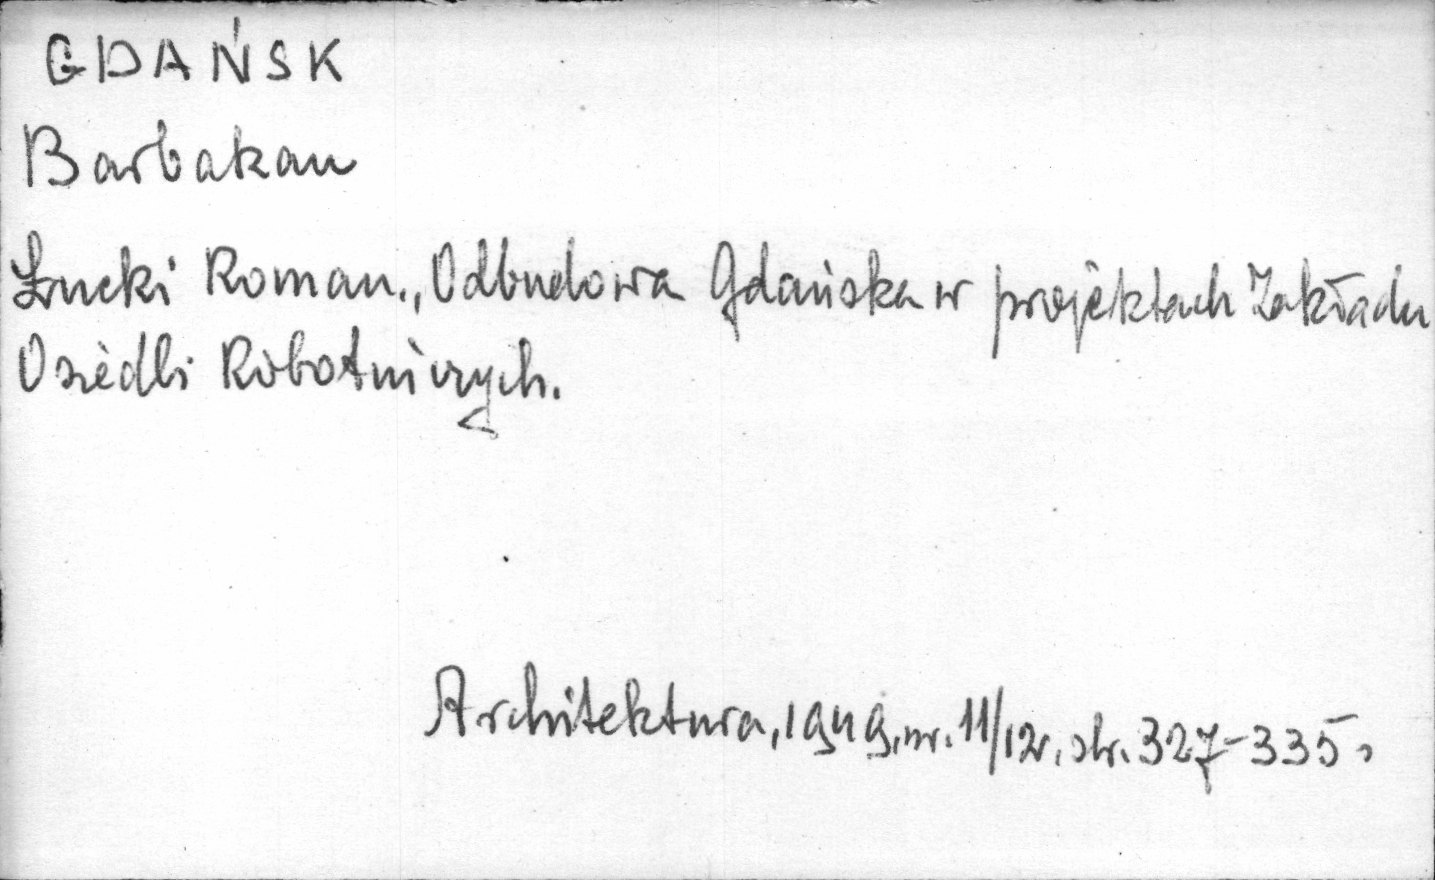 GDAŃSK
Barbakan
Łucki Roman., Odbudowa Gdańska w projektach Zakładu
Osiedli Robotniczych.
Architektura, 1949, nr. 11/12, str. 327-335.